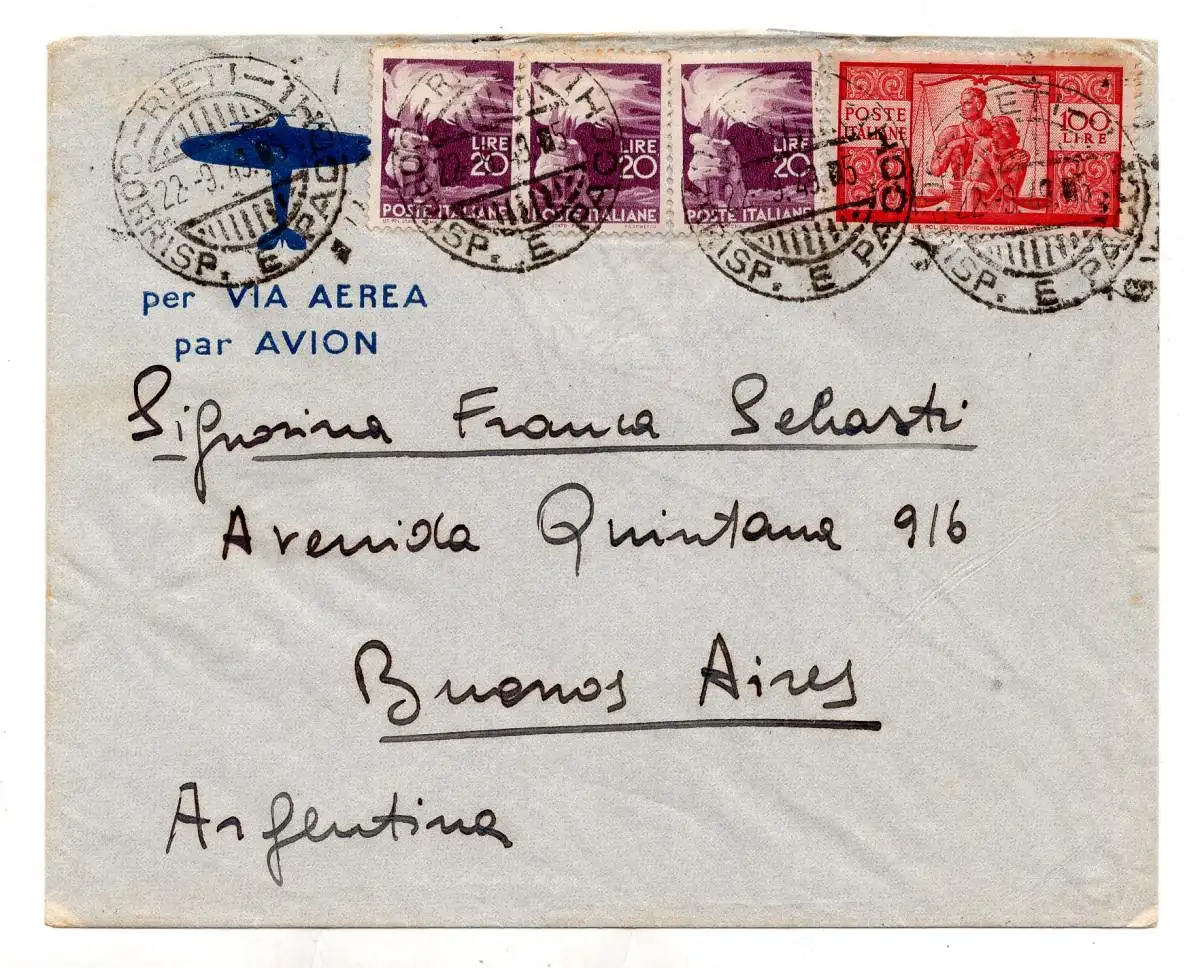 RIETI
CORRISP. E PACCHI
22.-9.49.
LIRE
20
POSTE ITALIANE
LIRE
20
POSTE ITALIANE
LIRE
20
POSTE ITALIANE
POSTE
ITALIANE
100
LIRE
100
per VIA AEREA
par AVION
Signorina Franca Sebasti
Avenida Quintana 916
Buenos Aires
Argentina